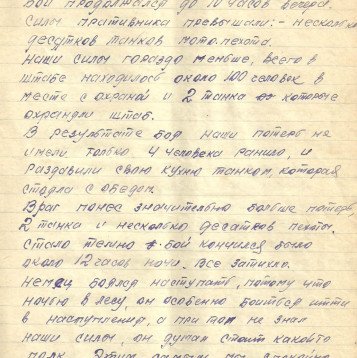 Бой продолжался до 10 часов вечера.
Силы противника превышали:- несколько
десятков танков мото.пехота.
Наши силы гораздо меньше, всего в
штабе находилось около 100 человек в
месте с охраной и 2 танка которые
охраняли штаб.
В результате боя наши потерь не
имели только 4 человека ранило, и
раздавили свою кухню танком, которая
стояла с обедом.
Враг понес значительно больше потерь
2 танка и несколько десятков пехоты.
Стало темно бой кончился было
около 12 часов ночи. Все затихло.
Немец боялся наступать, потому что
ночью в лесу, он особенно боиться итти
в наступления, а при том не знал
наши силы, он думал стоит какойто
полк.